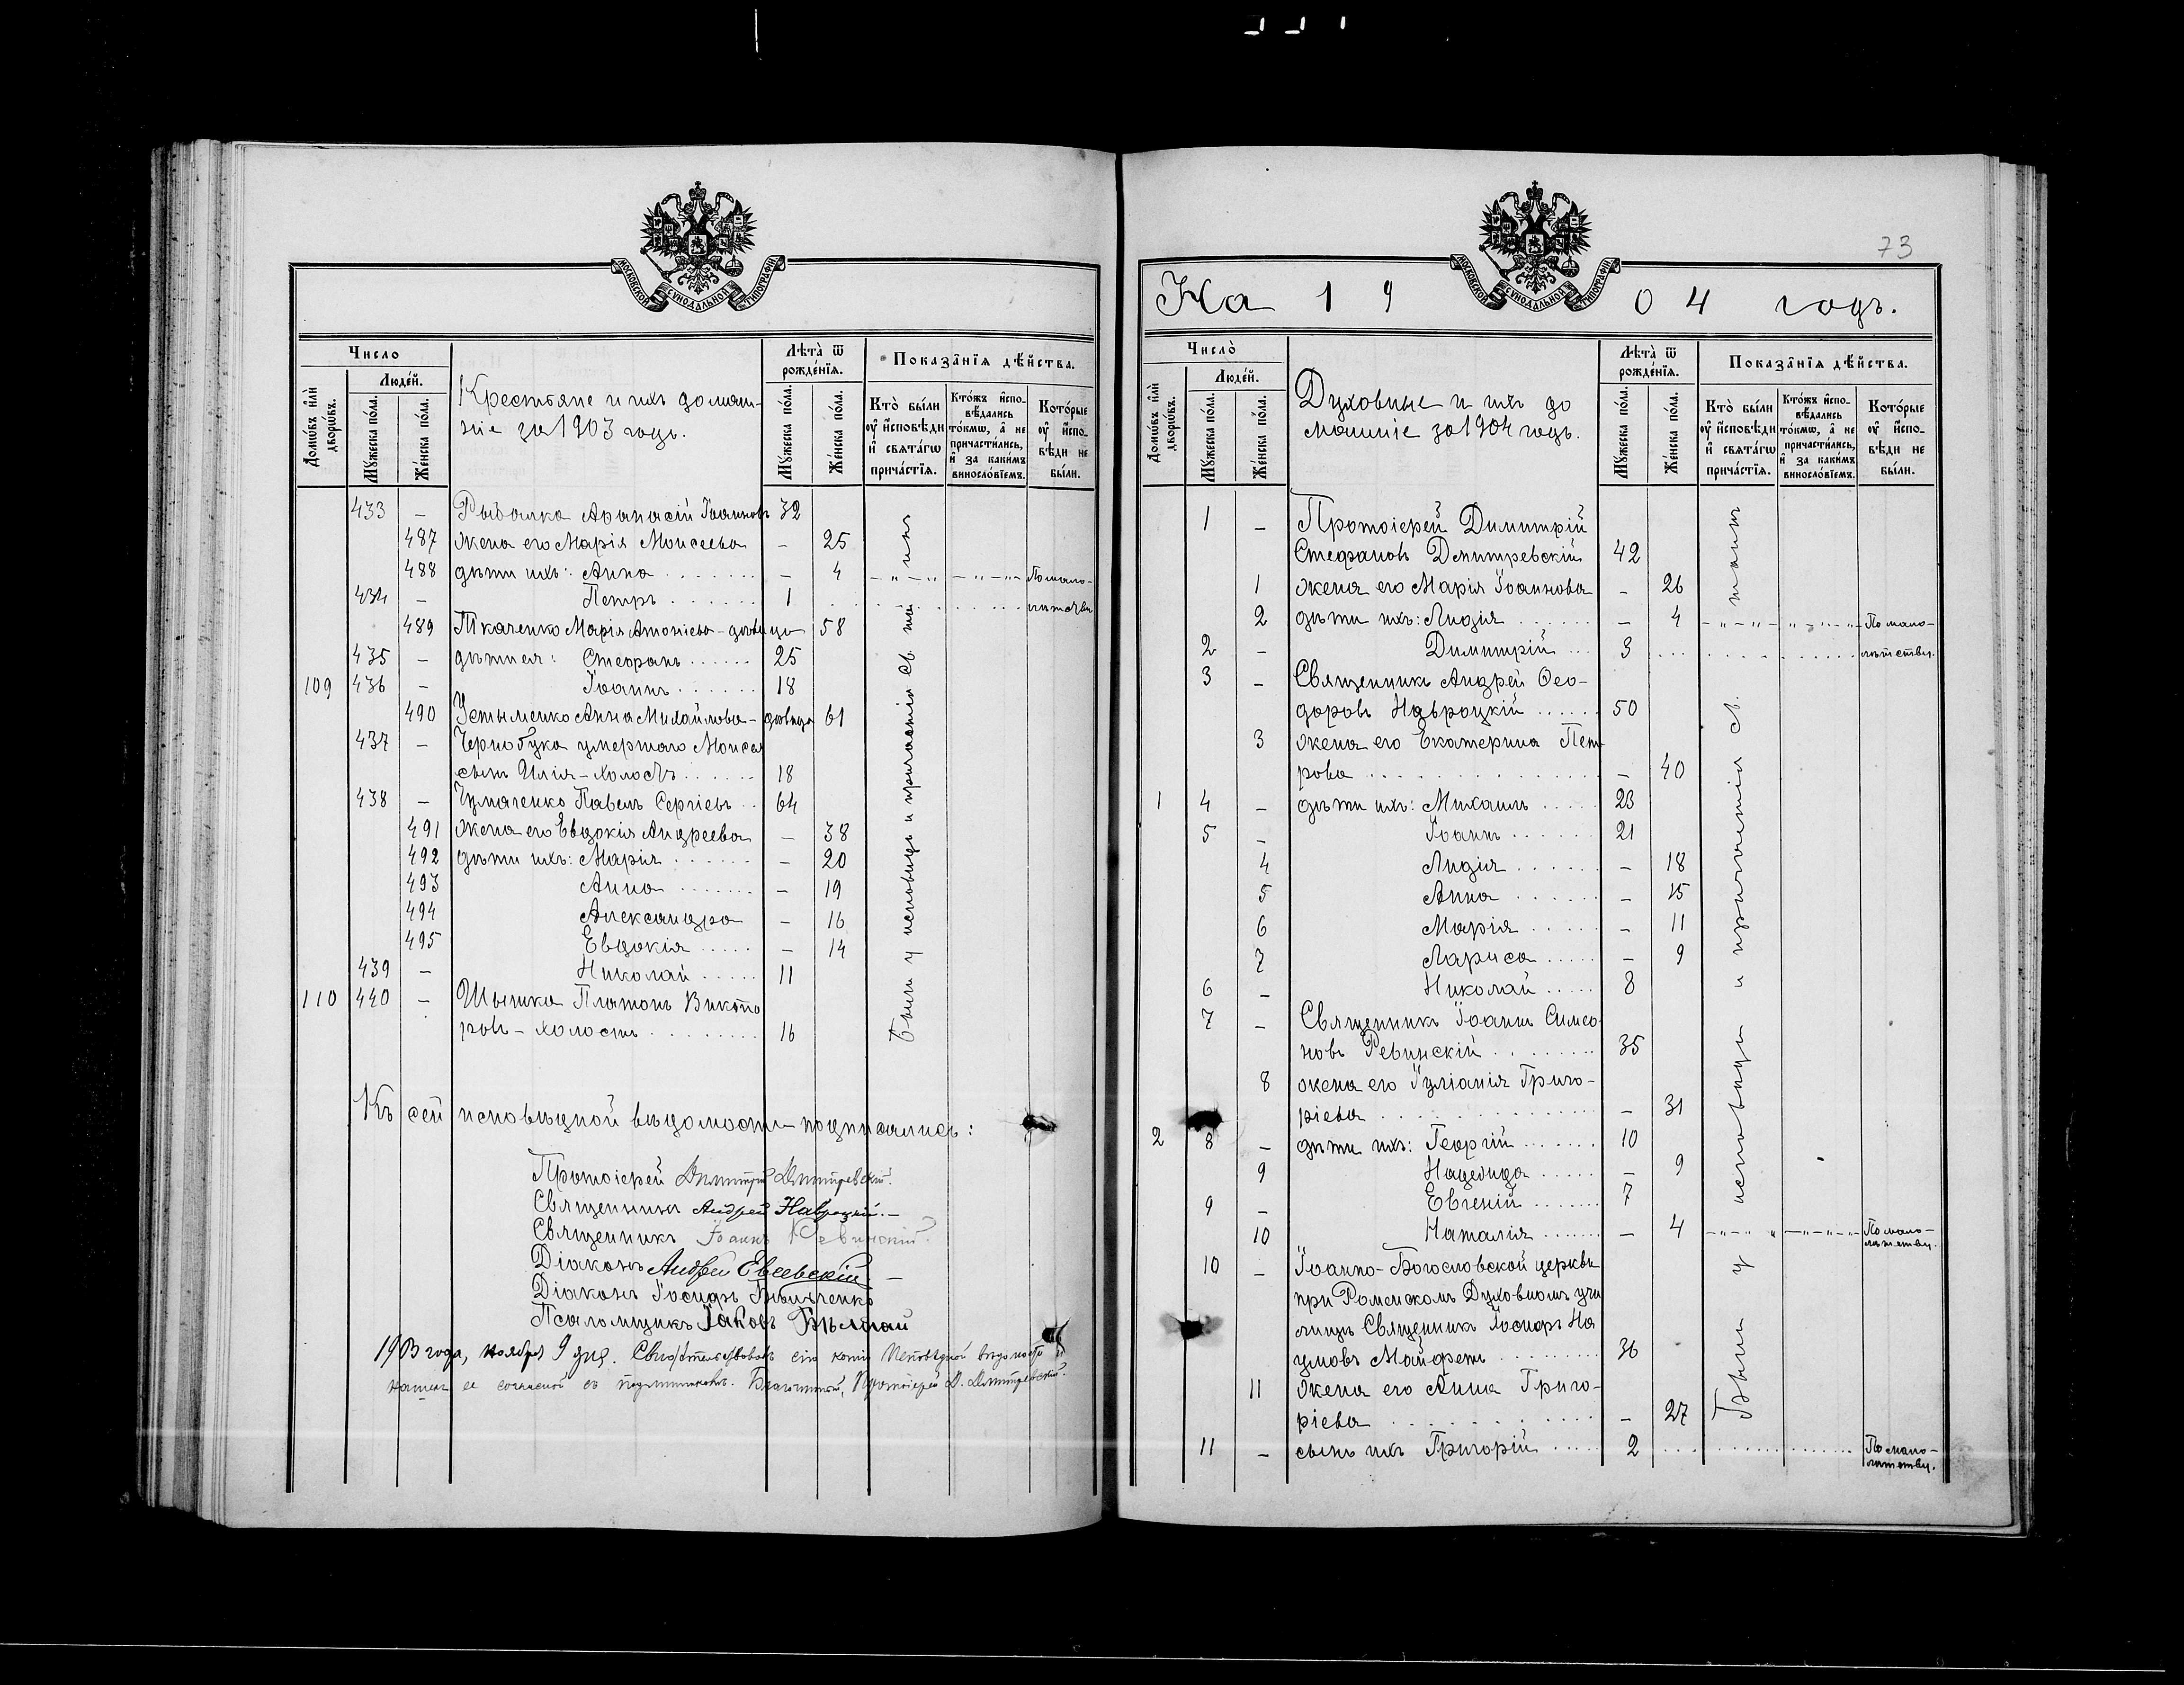 МОСКОВСКОЙ СѴНОДАЛЬНОЙ ТИПОГРАФІИ
Число
Людей.
Домѡвъ или дворѡвъ.
Мꙋжеска пола.
Женска пола.
Крестьяне и ихъ домаш-
ніе за 1903 годъ.
Лѣта ѿ рожденїѧ.
Мꙋжеска пола.
Женска пола.
Показанїѧ дѣйства.
Кто были ᲂу исповѣди и свѧтагѡ причастїѧ.
Ктожъ исповѣдались токмѡ, а не причастились, и за какимъ винословїемъ.
Которые ᲂу исповѣди не были.
433 – Рыбалка Аѳанасій Іоанновъ 32
487 жена его Марія Моисеева – 25
488 дѣти ихъ: Анна – 4 По мало-
434 – Петръ 1 лѣтству
489 Ткаченко Марія Антоніева – довица 58
435 – дѣти ея: Стефанъ 25
109 436 – Іоаннъ 18
490 Устименко Анна Михайлова – дѣвица 61
437 – Чернобука умершаго Моисея
сынъ Илія – холостъ 18
438 – Чумаченко Павелъ Сергіевъ 64
491 жена его Евдокія Андреева – 38
492 дѣти ихъ: Марія – 20
493 Анна – 19
494 Александра – 16
495 Евдокія – 14
439 – Николай 11
110 440 – Шышка Платонъ Викто
ровъ – холостъ 16
Были у исповѣди и причастія Св. таинъ
Къ сей исповѣдной вѣдомости подписались:
Протоіерей Димитрій Дмитревскій.
Священникъ Андрей Навроцкій. –
Священникъ Іоаннъ Ревинскій.
Діаконъ Андрей Евсевскій –
Діаконъ Іосифъ
Псаломщикъ Іаковъ
1903 года, ноября 9 дня. Свидѣтельствовалъ сію копію Исповѣдной вѣдомости и
нашелъ ее согласной съ подлинникомъ. Благочинный, Протоіерей Д. Дмитревскій.
73
На 1904 годъ.
МОСКОВСКОЙ СѴНОДАЛЬНОЙ ТИПОГРАФІИ
Число
Людей.
Домѡвъ или дворѡвъ.
Мꙋжеска пола.
Женска пола.
Духовные и ихъ до
машніе за 1904 годъ.
Лѣта ѿ рожденїѧ.
Мꙋжеска пола.
Женска пола.
Показанїѧ дѣйства.
Кто были ᲂу исповѣди и свѧтагѡ причастїѧ.
Ктожъ исповѣдались токмѡ, а не причастились, и за какимъ винословїемъ.
Которые ᲂу исповѣди не были.
1 – Протоіерей Димитрій
Стефановъ Дмитревскій 42
1 жена его Марія Іоаннова – 26
2 дѣти ихъ: Лидія – 4 По мало-
2 – Димитрій 3 лѣтству.
3 – Священникъ Андрей Ѳео-
доровъ Навроцкій 50
3 жена его Екатерина Пет
рова – 40
1 4 – дѣти ихъ: Михаилъ 23
5 – Іоаннъ 21
4 Лидія – 18
5 Анна – 15
6 Марія – 11
7 Лариса – 9
6 – Николай 8
7 – Священникъ Іоаннъ Симео
новъ Ревинскій 35
8 жена его Іуліанія Григо-
ріева – 31
2 8 – дѣти ихъ: Георгій 10
9 Надежда – 9
9 – Евгеній 7
10 Наталія – 4 По мало-
лѣтству.
10 – Іоанно-Богословской церкви
при Роменскомъ Духовномъ учи
лищѣ Священникъ Іосифъ На
умовъ Майфетъ 36
11 жена его Анна Григо-
ріева – 27
11 – сынъ ихъ Григорій 2 По мало-
лѣтству.
Были у исповѣди и причастія св. таинъ